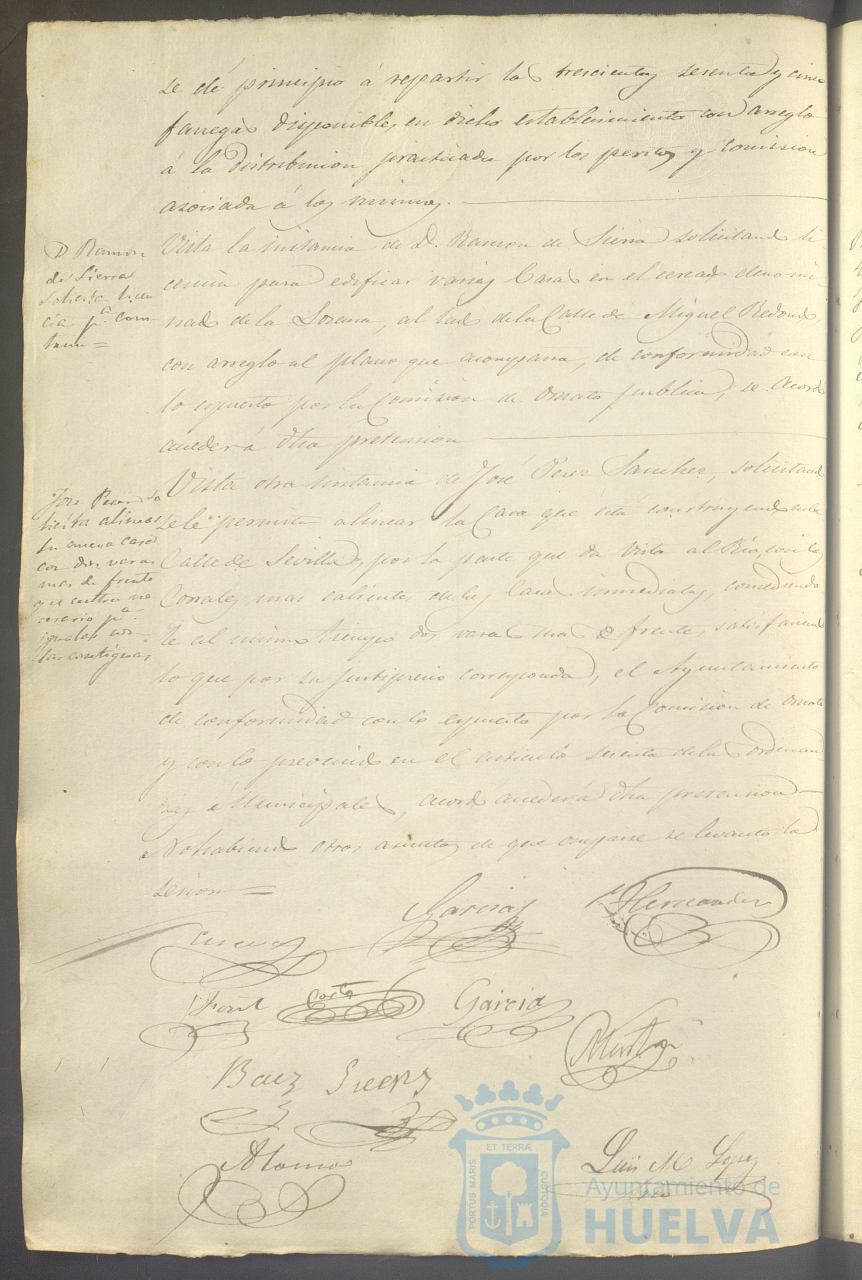 se dé principio á repartir las trescientas sesenta y cinco
fanegas disponibles en dicho establecimiento con arreglo
á la distribucion practicada por los peritos y Comision
asociada á los mismos.
D Ramon
de Sierra
solicita licen
cia pa. cons
truir=
Vista la instancia de D. Ramon de Sierra solicitando li-
cencia para edificar varias Casas en el cercado denomi-
nado de la Lorena, al lado de la Calle de Miguel Redondo,
con arreglo al plano que acompaña, de conformidad con
lo espuesto por la Comision de Ornato publico, se Acordó
acceder á dha pretension
José Perez So
licita alinear
su nueva casa
con dos varas
mas de frente
que entran ne
cesario pa.
igualar con
las contiguas
Vista otra instancia de José Perez Sanchez, solicitando
se le permita alinear la Casa que está construyendo en la
Calle de Sevilla, por la parte que da vista al Rio, con los
Corrales mas salientes de las Casas inmediatas, concediendo
le al mismo tiempo dos varas mas de frente, satisfaciendo
lo que por su justiprecio corresponda, el Ayuntamiento
de conformidad con lo espuesto por la Comision de Ornato
y con lo prevenido en el articulo sesenta de las Ordenan
zas Municipales, acordó acceder á dha pretension
No habiendo otros asuntos de que ocuparse se levantó la
sesion=
Garcia
Hernandez
Cuevas
Font
Garcia
Baez
Alonso
Luis M. Lopez
PORTUS MARIS
ET TERRA
CUSTODIA
Ayuntamiento de
HUELVA